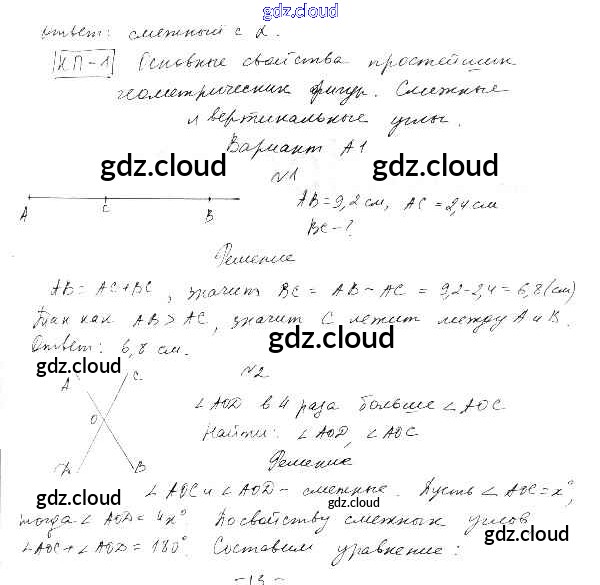 gdz.cloud
Ответ: смежный с α.
КП-1 Основные свойства простейших
геометрических фигур. Смежные
и вертикальные углы.
Вариант А1
gdz.cloud gdz.cloud
№1
A C B
AB = 9,2 см, AC = 2,4 см
BC - ?
Решение
AB = AC + BC, значит BC = AB - AC = 9,2 - 2,4 = 6,8 (см)
Так как AB > AC, значит C лежит между A и B.
Ответ: 6,8 см.
gdz.cloud
gdz.cloud
№2
A C
O
B
∠AOD в 4 раза больше ∠AOC
Найти: ∠AOD, ∠AOC
Решение
gdz.cloud
∠AOC и ∠AOD - смежные. Пусть ∠AOC = x°,
gdz.cloud gdz.cloud
тогда ∠AOD = 4x°. По свойству смежных углов
∠AOC + ∠AOD = 180°. Составим уравнение:
gdz.cloud gdz.cloud